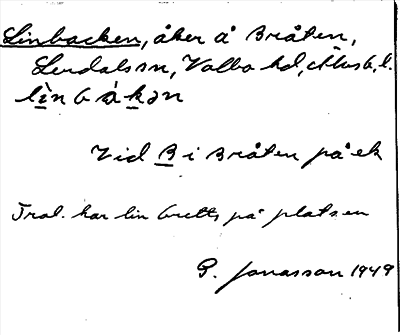 Linbacken, åker å Bråten,
Lerdals sn, Valbo hd, Älvsb. l.
lìnbákən
Vid B i Bråten på ek
Trol. har lin bretts på platsen
G. Jonasson 1949